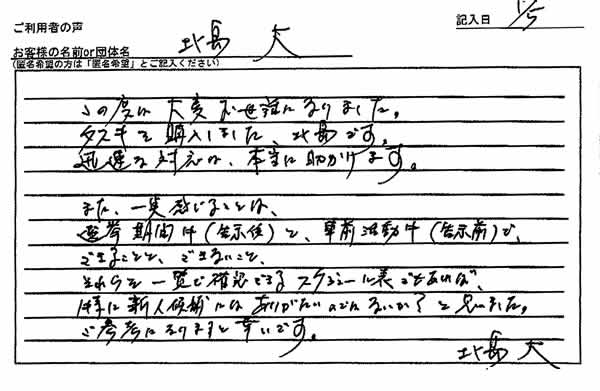 ご利用者の声
記入日 11/5
お客様の名前or団体名 北島 大
(匿名希望の方は「匿名希望」とご記入ください)
この度は大変お世話になりました。
タスキを購入しました、北島です。
迅速な対応は、本当に助かります。
また、一実感じることは、
選挙期間中(告示後)と、事前活動中(告示前)で、
できることと、できないこと、
それらを一覧で確認できるスケジュール表でもあれば、
特に新人候補にはありがたいのではないか？と思いました。
ご参考になりますと幸いです。
北島 大